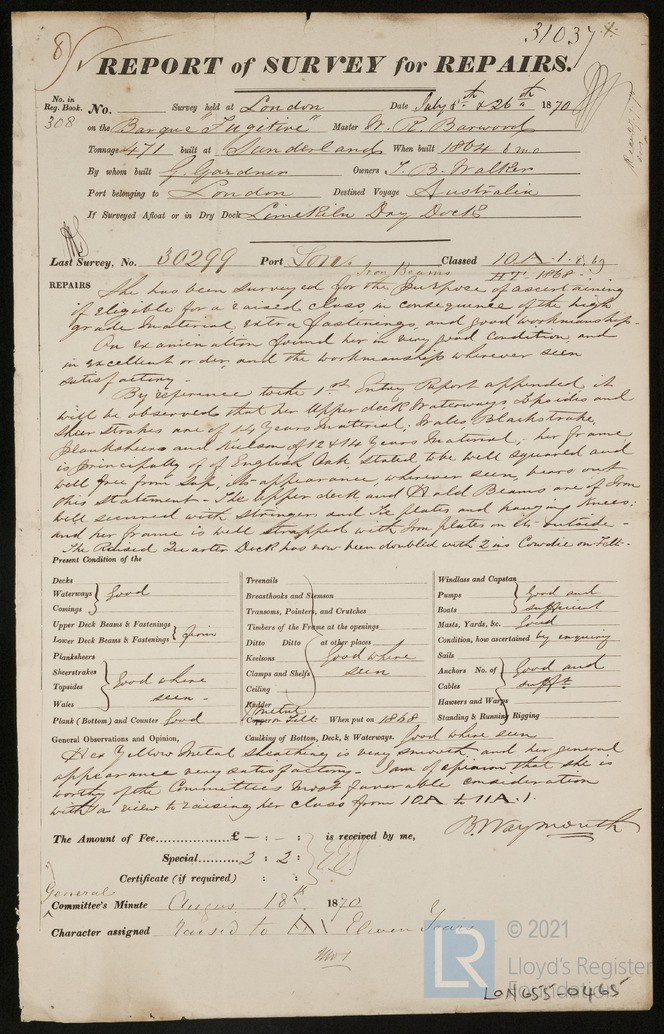 31037
8
REPORT of SURVEY for REPAIRS.
No. in Reg. Book.
308
No. Survey held at London Date July 8th & 26th 1870
on the Barque "Fugitive" Master W. R. Barword
Tonnage 471 built at Sunderland When built 1864 6 mo
By whom built G. Gardner Owners T. B. Walker
Port belonging to London Destined Voyage Australia
If Surveyed Afloat or in Dry Dock Limekiln Dry Dock
Last Survey, No. 30299 Port Lon. Classed 10 A.1. 8, 69
Iron Beams
H.T. 1868
REPAIRS She has been surveyed for the purpose of ascertaining
if eligible for a raised class, in consequence of the high
grade material, extra fastenings, and good workmanship.
On examination found her in very good condition, and
in excellent order, and the workmanship wherever seen
satisfactory.
By reference to the 1st Entry Report appended, it
will be observed that her Upper deck Waterways, Topsides and
Sheerstrakes are of 14 Years material, Wales, Blackstrake,
Planksheers and Keelson of 12 & 14 Years Material; her frame
is principally of of English Oak, stated to be well squared and
well free from Sap, its appearance, wherever seen, bears out
this statement - The Upper deck and Hold Beams are of Iron
well secured with Stringers and Tie plates and hanging Knees;
and her frame is well strapped with Iron plates on its outside -
The Raised Quarter Deck has now been doubled with 2 ins Cowdie on Felt -
Present Condition of the
Decks
Waterways
Comings
Good
Upper Deck Beams & Fastenings
Lower Deck Beams & Fastenings
Iron
Planksheers
Sheerstrakes
Topsides
Wales
Good where
seen -
Plank (Bottom) and Counter Good
Treenails
Breasthooks and Stemson
Transoms, Pointers, and Crutches
Timbers of the Frame at the openings
Ditto Ditto at other places
Keelsons
Clamps and Shelfs
Ceiling
Rudder
Good where
seen
Y Metal
Copper on Felt When put on 1868
Caulking of Bottom, Deck, & Waterways. Good where seen
Windlass and Capstan
Pumps
Boats
Good and
sufficient
Masts, Yards, &c. Good
Condition, how ascertained by enquiry
Sails
Anchors No. of
Cables
Hawsers and Warps
Good and
sufft
Standing & Running Rigging
General Observations and Opinion,
Her Yellow Metal Sheathing is very smooth, and her general
appearance very satisfactory - I am of opinion that she is
worthy of the Committees most favorable consideration
with a view to raising her class from 10A to 11A.1.
B. Waymouth
The Amount of Fee £ - : - : is received by me,
Special 2 : 2 :
Certificate (if required) : :
General
Committee's Minute August 18th 1870
Character assigned Raised to A1 Eleven Years
© 2021
LR
Lloyd's Register
Foundation
LON655-0465